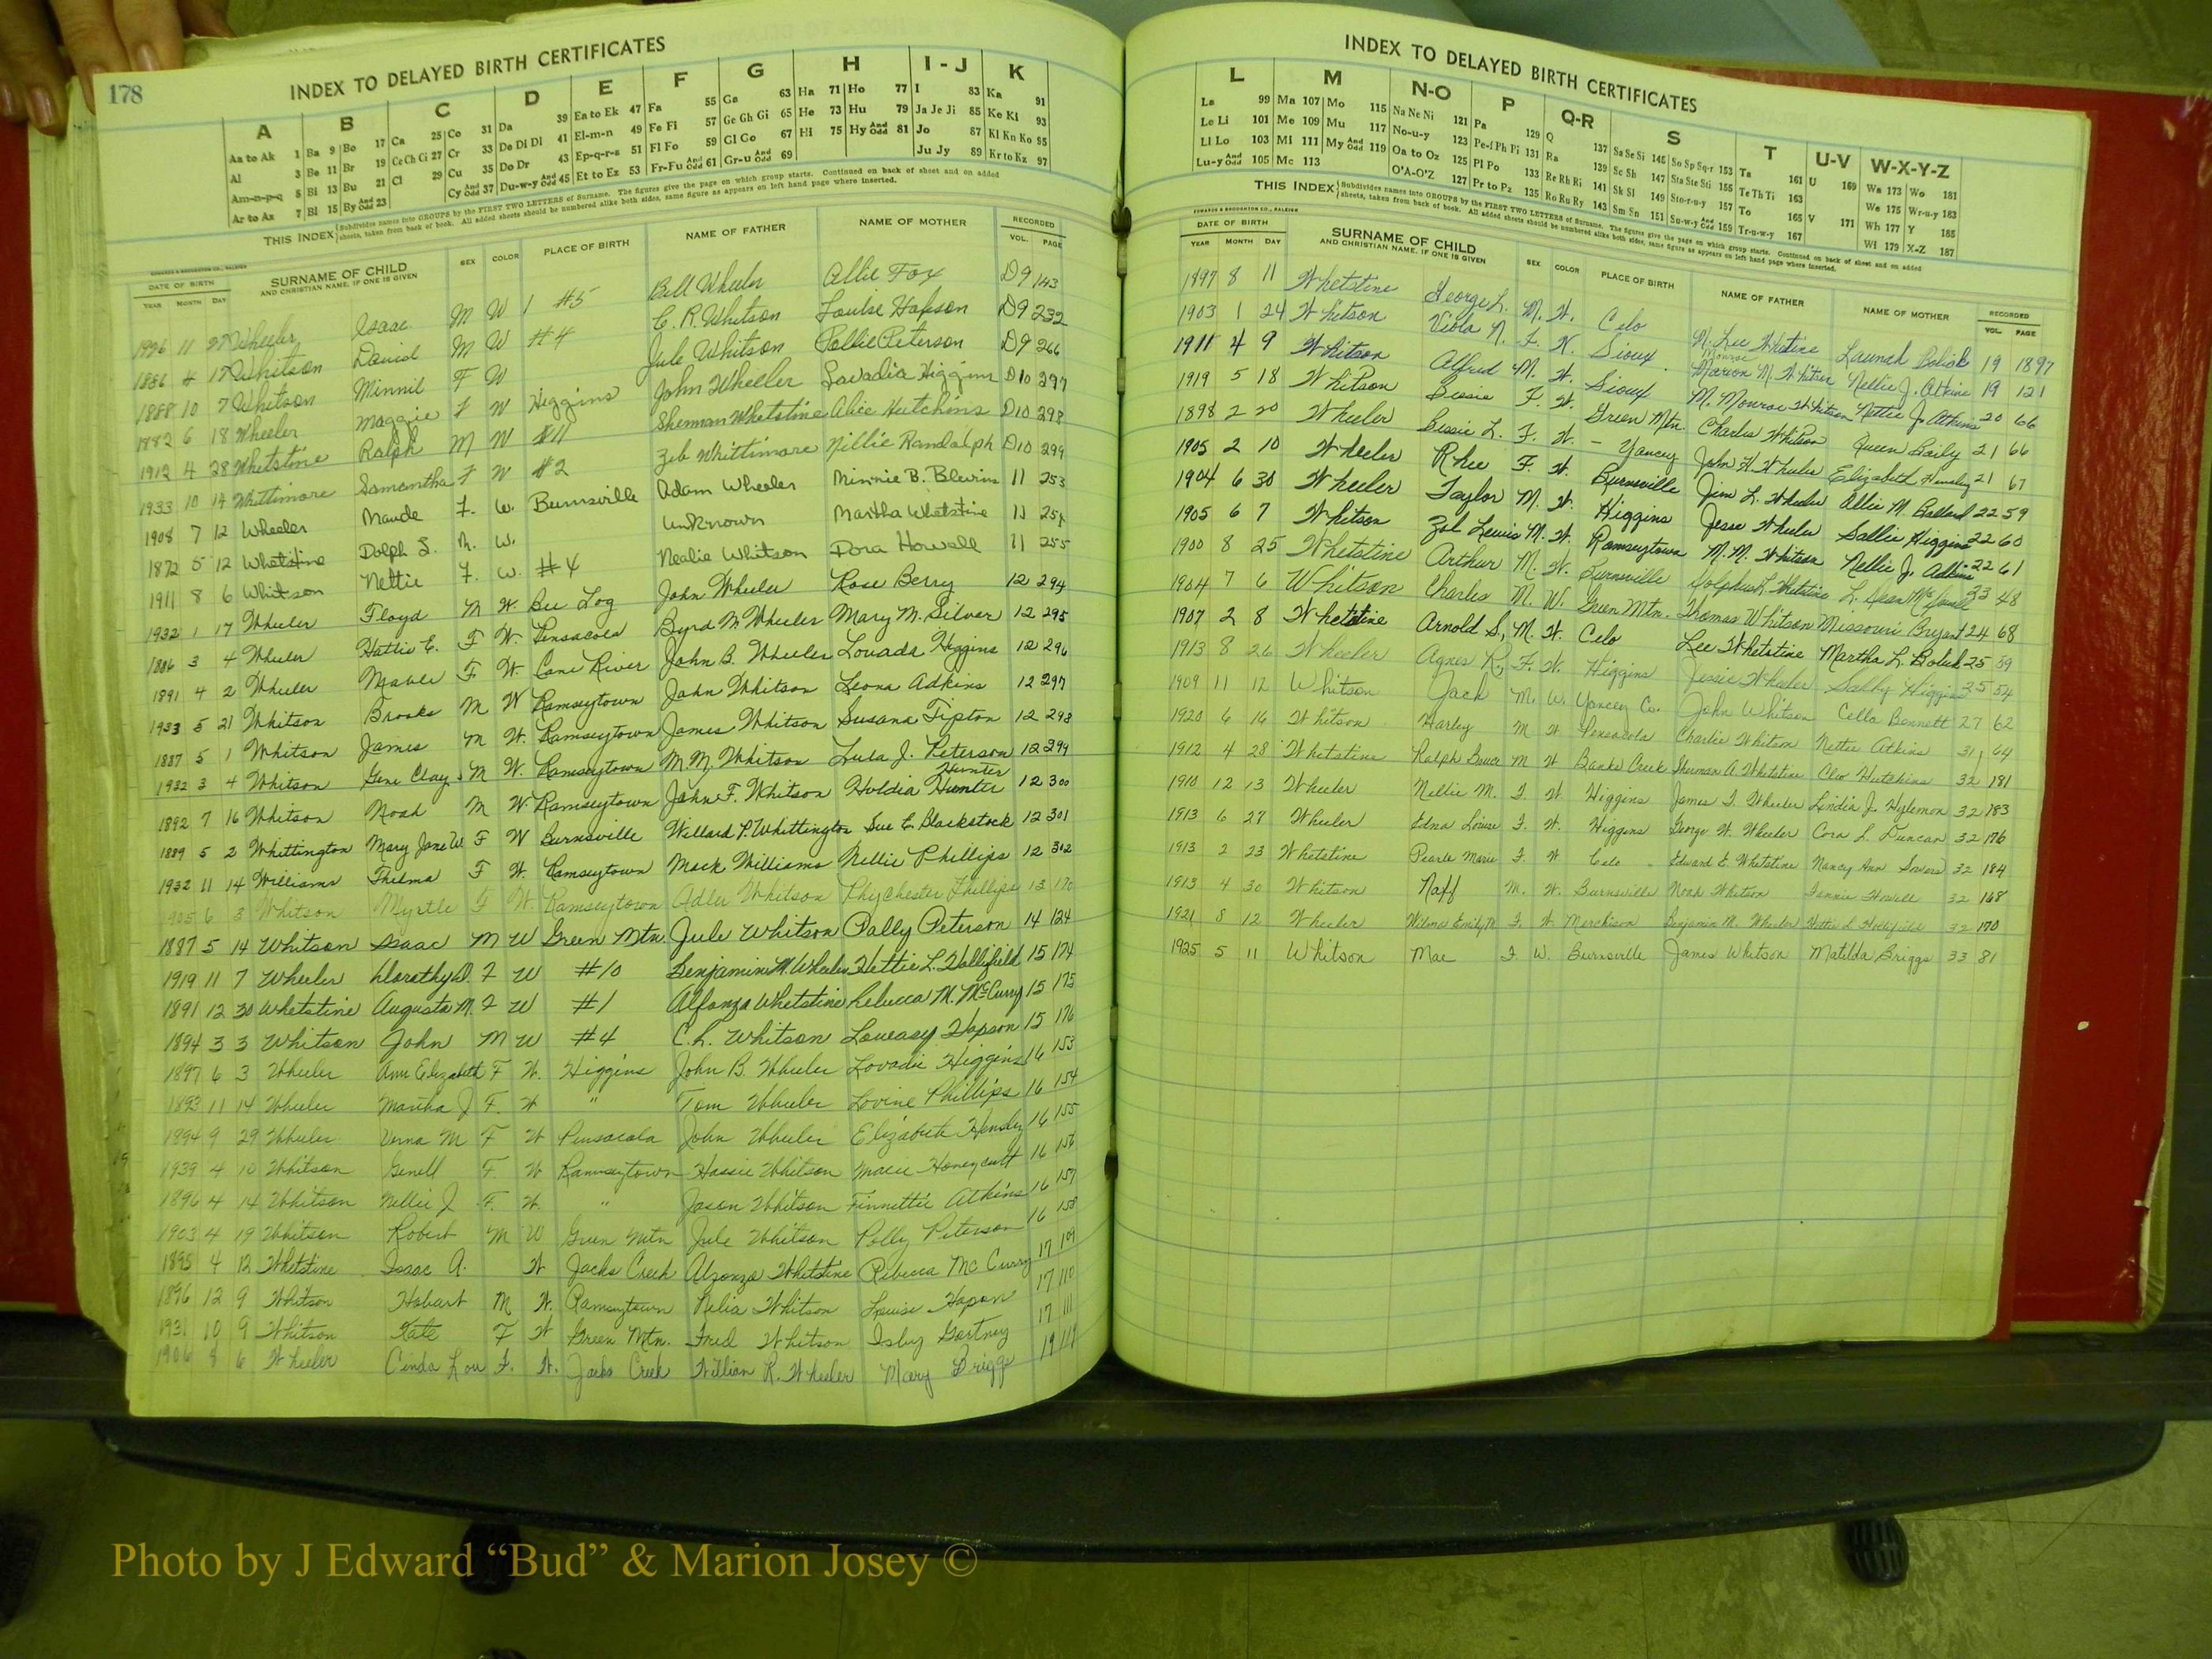 178
INDEX TO DELAYED BIRTH CERTIFICATES
A B C D E F G H I - J K
Aa to Ak 1 Ba 9 Bo 17 Ca 25 Co 31 Da 39 Ea to Ek 47 Fa 55 Ga 63 Ha 71 Ho 77 I 83 Ka 91
Al 3 Be 11 Br 19 Ce Ch Ci 27 Cr 33 De Di Dl 41 El-m-n 49 Fe Fi 57 Ge Gh Gi 65 He 73 Hu 79 Ja Je Ji 85 Ke Ki 93
Am-n-p-q 5 Bi 13 Bu 21 Cl 29 Cu 35 Do Dr 43 Ep-q-r-s 51 Fl Fo 59 Gl Go 67 Hi 75 Hy And Odd 81 Jo 87 Kl Kn Ko 95
Ar to Az 7 Bl 15 By And Odd 23 Cy And Odd 37 Du-w-y And Odd 45 Et to Ez 53 Fr-Fu And Odd 61 Gr-u And Odd 69 Ju Jy 89 Kr to Kz 97
THIS INDEX Subdivides names into GROUPS by the FIRST TWO LETTERS of Surname. The figures give the page on which group starts. Continued on back of sheet and on added
sheets, taken from back of book. All added sheets should be numbered alike both sides, same figure as appears on left hand page where inserted.
EDWARDS & BROUGHTON CO., RALEIGH
DATE OF BIRTH SURNAME OF CHILD SEX COLOR PLACE OF BIRTH NAME OF FATHER NAME OF MOTHER RECORDED
YEAR MONTH DAY AND CHRISTIAN NAME, IF ONE IS GIVEN VOL. PAGE
11 27 Wheeler Isaac M W #5 Bill Wheeler Allie Fox D9 143
1886 4 17 Whitson David M W #4 C. R. Whitson Louise Hopson D9 232
1888 10 7 Whitson Minnie F W Jule Whitson Pollie Peterson D9 266
1882 6 18 Wheeler Maggie F W Higgins John Wheeler Lavadia Higgins D10 297
1912 4 28 Whetstine Ralph M W #11 Sherman Whetstine Alice Hutchins D10 298
1933 10 14 Whittimore Samantha F W #2 Zeb Whittimore Nillie Randolph D10 299
1908 7 12 Wheeler Maude F. W. Burnsville Adam Wheeler Minnie B. Blevins 11 253
1872 5 12 Whetstine Dolph S. M. W. Unknown Martha Whetstine 11
1911 8 6 Whitson Nettie F. W. #4 Nealie Whitson Dora Howell 11 255
1932 1 17 Wheeler Floyd M W. Bee Log John Wheeler Rose Berry 12 294
1886 3 4 Wheeler Hattie E. F W. Pensacola Byrd M. Wheeler Mary M. Silver 12 295
1891 4 2 Wheeler F W. Cane River John B. Wheeler Lovada Higgins 12 296
1933 5 21 Whitson Brooks M W Ramseytown John Whitson Leona Adkins 12 297
1887 5 1 Whitson James M W. Ramseytown James Whitson Susana Tipton 12 298
1932 3 4 Whitson Gene Clay M W. Ramseytown M. M. Whitson Lula J. Peterson 12 299
1892 7 16 Whitson Noah M W. Ramseytown John F. Whitson Huldia Hunter Hunter 12 300
1889 5 2 Whittington Mary Jane W. F W Burnsville Willard P. Whittington Sue E. Blackstock 12 301
1932 11 14 Williams Thelma F W. Ramseytown Mack Williams Nellie Phillips 12 302
1905 6 3 Whitson Myrtle F W Ramseytown Adler Whitson Phychester Phillips 13 170
1887 5 14 Whitson Isaac M W Green Mtn. Jule Whitson Pally Peterson 14 124
1919 11 7 Wheeler Dorothy D. F W #10 Benjamin M. Wheeler Hettie L. Hollifield 15 174
1891 12 30 Whetstine Augusta M. F W #1 Alfonza Whetstine Rebecca M. McCurry 15 175
1894 3 3 Whitson John M W #4 C. L. Whitson Loueasy Hopson 15 176
1897 6 3 Wheeler Ann Elizabeth F W. Higgins John B. Wheeler Lovadie Higgins 16 153
1893 11 14 Wheeler Martha J F. W " Tom Wheeler Lovine Phillips 16 154
1894 9 29 Wheeler Verna M F W Pensacola John Wheeler Elizabeth Hensley 16 155
1939 4 10 Whitson Genell F. W Ramseytown Hassie Whitson Macie Honeycutt 16 156
1896 4 14 Whitson Nellie J F. W. " Jason Whitson Finnettie Atkins 16 157
1903 4 19 Whitson Robert M W Green Mtn Jule Whitson Polly Peterson 16 158
1895 4 12 Whetstine Isaac A. W Jacks Creek Alzonza Whetstine Rebecca McCurry 17 109
1896 12 9 Whitson Hobart M W. Ramseytown Nelia Whitson Louise Hopson 17 110
1931 10 9 Whitson Kate F W Green Mtn. Fred Whitson Isby Gortney 17 111
1906 8 6 Wheeler Cinda Lou F. W. Jacks Creek William R. Wheeler Mary Briggs 19
INDEX TO DELAYED BIRTH CERTIFICATES
L M N-O P Q-R S T U-V W-X-Y-Z
La 99 Ma 107 Mo 115 Na Ne Ni 121 Pa 129 Q 137 Sa Se Si 145 So Sp Sq-r 153 Ta 161 U 169 Wa 173 Wo 181
Le Li 101 Me 109 Mu 117 No-u-y 123 Pe-f Ph Pi 131 Ra 139 Sc Sh 147 Sta Ste Sti 155 Te Th Ti 163 We 175 Wr-u-y 183
Ll Lo 103 Mi 111 My And Odd 119 Oa to Oz 125 Pl Po 133 Re Rh Ri 141 Sk Sl 149 Sto-r-u-y 157 To 165 V 171 Wh 177 Y 185
Lu-y And Odd 105 Mc 113 O'A-O'Z 127 Pr to Pz 135 Ro Ru Ry 143 Sm Sn 151 Su-w-y And Odd 159 Tr-u-w-y 167 Wi 179 X-Z 187
THIS INDEX Subdivides names into GROUPS by the FIRST TWO LETTERS of Surname. The figures give the page on which group starts. Continued on back of sheet and on added
sheets, taken from back of book. All added sheets should be numbered alike both sides, same figure as appears on left hand page where inserted.
EDWARDS & BROUGHTON CO., RALEIGH
DATE OF BIRTH SURNAME OF CHILD SEX COLOR PLACE OF BIRTH NAME OF FATHER NAME OF MOTHER RECORDED
YEAR MONTH DAY AND CHRISTIAN NAME, IF ONE IS GIVEN VOL. PAGE
1897 8 11 Whetstine George L. M. W. Celo N. Lee Whetstine Launah Bolick 19 1897
1903 1 24 Whitson Viola N. F. W. Sioux Marion Monroe M. Whitson Nellie J. Atkins 19 121
1911 4 9 Whitson Alfred M. W. Sioux M. Monroe Whitson Nettie J. Atkins 20 66
1919 5 18 Whitson Bessie F. W. Green Mtn. Charlie Whitson Queen Baily 21 66
1898 2 20 Wheeler Bessie L. F. W. - Yancey John H. Wheeler Elizabeth Hensley 21 67
1905 2 10 Wheeler Rhee F. W. Burnsville Jim L. Wheeler Allie M. Ballard 22 59
1904 6 30 Wheeler Taylor M. W. Higgins Jesse Wheeler Sallie Higgins 22 60
1905 6 7 Whitson Zeb Lewis M. W. Ramseytown M. M. Whitson Nellie J. Adkins 22 61
1900 8 25 Whetstine Arthur M. W. Burnsville Dolphus L. Whetstine L. 23 48
1904 7 6 Whitson Charles M. W. Green Mtn. Thomas Whitson Missouri Bryant 24 68
1907 2 8 Whetstine Arnold S, M. W. Celo Lee Whetstine Martha L. Bolick 25 59
1913 8 26 Wheeler Agnes R, F. W. Higgins Jessie Wheeler Sally Higgins 25 54
1909 11 12 Whitson Jack M. W. Yancey Co. John Whitson Cella Bennett 27 62
1920 6 16 Whitson Harley M W Pensacola Charlie Whitson Nettie Atkins 31 64
1912 4 28 Whetstine Ralph Bruce M W Banks Creek Sherman A Whetstine Hutchins 32 181
1910 12 13 Wheeler Nellie M. F. W. Higgins James F. Wheeler Lindia J. Hylemon 32 183
1913 6 27 Wheeler Edna Louise F. W. Higgins George W. Wheeler Cora L. Duncan 32 176
1913 2 23 Whetstine Pearle Marie F. W Celo Edward E. Whetstine Nancy Ann 32 184
1913 4 30 Whitson Naff M. W. Burnsville Noah Whitson Fannie Howell 32 168
1921 8 12 Wheeler Wilma F. W. Murchison Benjamin M. Wheeler Hettie L Hollifield 32 170
1925 5 11 Whitson Mae F W. Burnsville James Whitson Matilda Briggs 33 81
Photo by J Edward “Bud” & Marion Josey ©